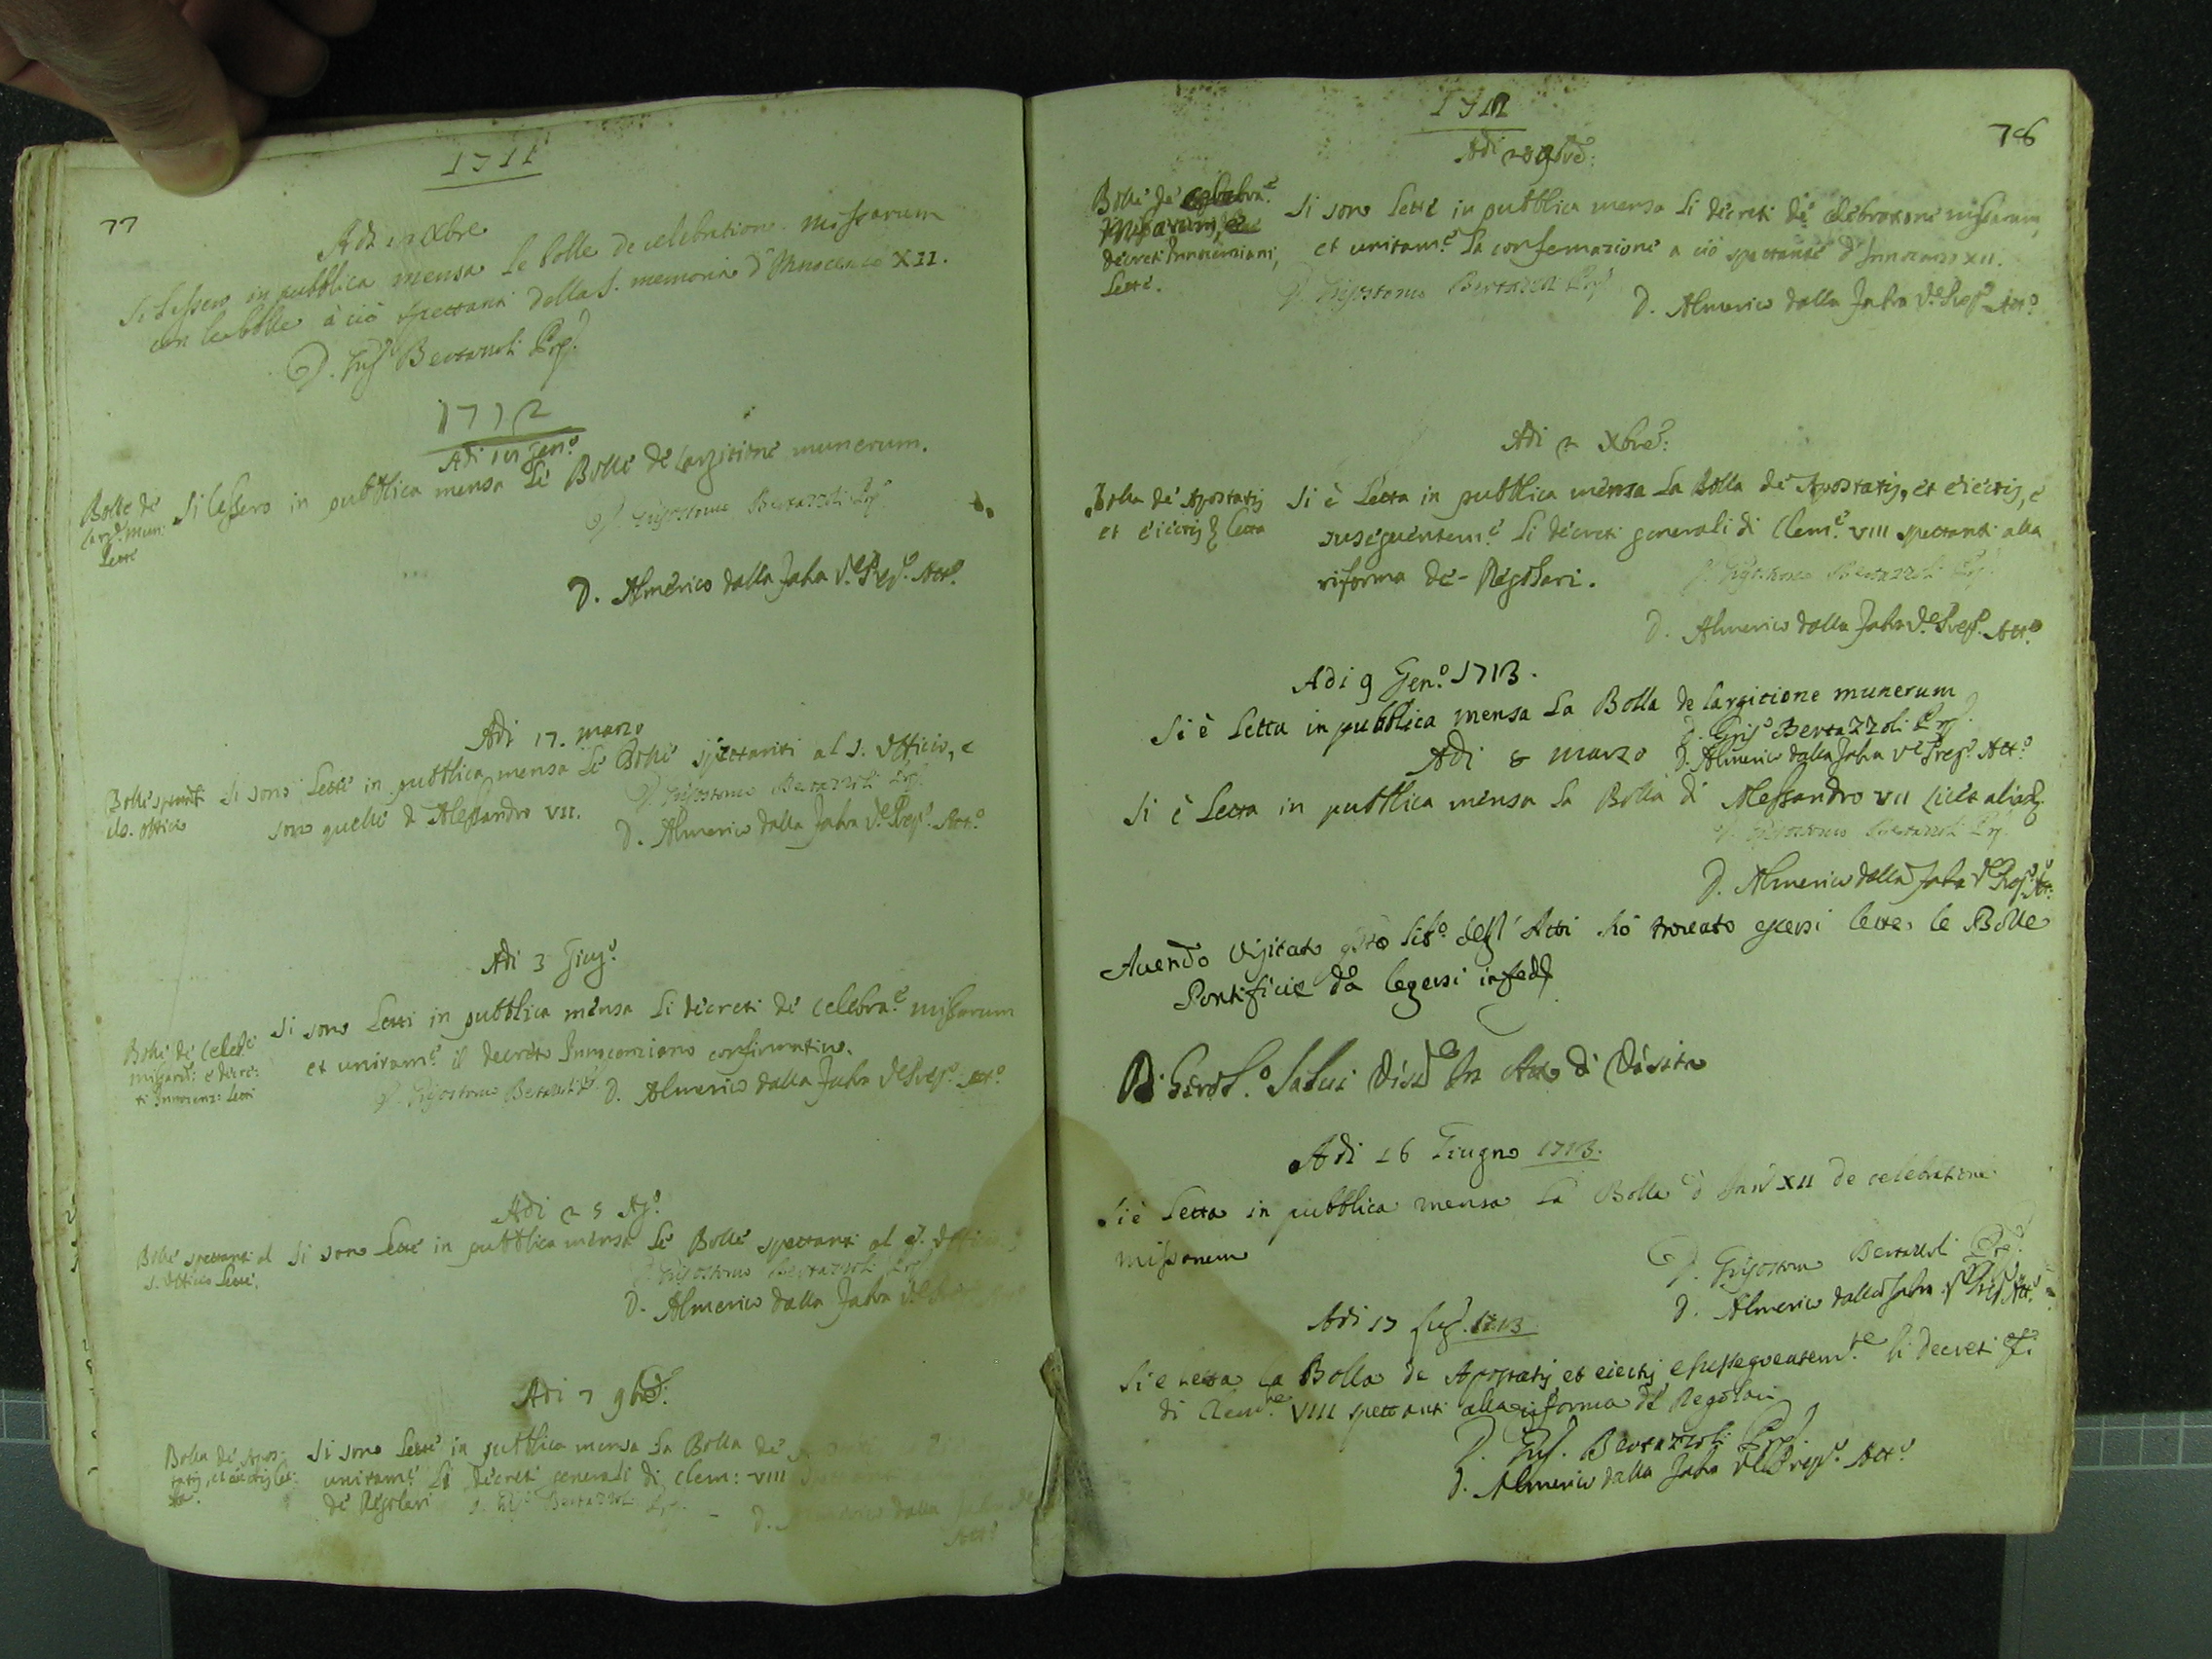 77
1711
Adi Xbre
Si lessero in pubblica mensa le bolle de celebratione missarum
con le bolle à ciò spettanti della S. memoria d'Innocenzo XII.
D. Gris.º Bertazzoli Prep.º
1712
Adi Gen.º
Bolle de
larg.e mun:
lette
Si lessero in pubblica mensa le Bolle de largitione munerum.
D. Grisostomo Bertazzoli Prep.º
D. Almerico dalla Jaba V.e Prep.º Att.º
Adi 17. marzo
Bolle spettanti
al s. Officio
Si sono lette in pubblica mensa le Bolle spettanti al s. Officio, e
sono quelle d Alessandro VII.
D. Grisostomo Bertazzoli Prep.º
D. Almerico dalla Jaba V.e Prep.º Att.º
Adi 3 Giug.º
Bolle de Celeb.e
missarũ: e decre:
ti Innocenz: letti
Si sono letti in pubblica mensa li decreti de celebra.e missarum
et unitam.e il decreto Innocenziano confirmativo.
D. Grisostomo Bertazzoli
D. Almerico dalla Jaba V.e Prep.º Att.º
Adi 25 Ag.º
Bolle spettanti al
s. Officio lette.
Si sono lette in pubblica mensa le Bolle spettanti al S. Officio
D. Grisostomo Bertazzoli Prep.º
D. Almerico dalla Jaba
Adi 7 9bre:
Bolla de Apos:
tatis, et eiectis let:
ta.
Si sono lette in pubblica mensa la Bolla de
unitam.e li decreti generali di Clem: VIII
de Regolari
D. Gris.º Bertazzoli
D. Almerico dalla Jaba
Att.º
78
1712
Adi 28 9bre:
Bolle de celebra.e
missarum, e
decreti Innocenziani,
lette.
Si sono lette in pubblica mensa li decreti de celebratione missarum,
et unitam.e la confermazione a ciò spettante d'Innocenzo XII.
D. Grisostomo Bertazzoli Prep.º
D. Almerico dalla Jaba V.e Prep.º Att.º
Adi 2 Xbre:
Bolla de Apostatis
et eiectis letta
Si è letta in pubblica mensa la Bolla de Apostatis, et eiectis, e
suseguentem.e li decreti generali di Clem.e VIII spettanti alla
riforma de- Regolari.
D. Grisostomo Bertazzoli Prep.º
D. Almerico dalla Jaba V.e Prep.º Att.º
Adi 9 Gen.º 1713.
Si è letta in pubblica mensa la Bolla de largitione munerum
D. Gris.º Bertazzoli Prep.º
D. Almerico dalla Jaba V.e Prep.º Att.º
Adi 8 marzo
Si è letta in pubblica mensa la Bolla di Alessandro VII licet alias
D. Grisostomo Bertazzoli Prep.
D. Almerico dalla Jaba V.e Prep.º Att.º
Avendo visitato q̃sto lib.º degl' Atti hò trovato essersi lette le Bolle
Pontificie da legersi in fede
Salui in Atto di Visita
Adi 16 Giugno 1713.
Si è letta in pubblica mensa la Bolla d Inn.º XII de celebratione
missarum
D. Grisostomo Bertazzoli Prep.º
D. Almerico dalla Jaba V.e Prep.º Att.º
Adi 17 1713
Si è letta la Bolla de Apostatis et eiectis, e sussequentem.te li decreti
di Clem.te VIII spettanti alla riforma de Regolari
D. Gris.º Bertazzoli Prep.º
D. Almerico dalla Jaba V.e Prep.º Att.º